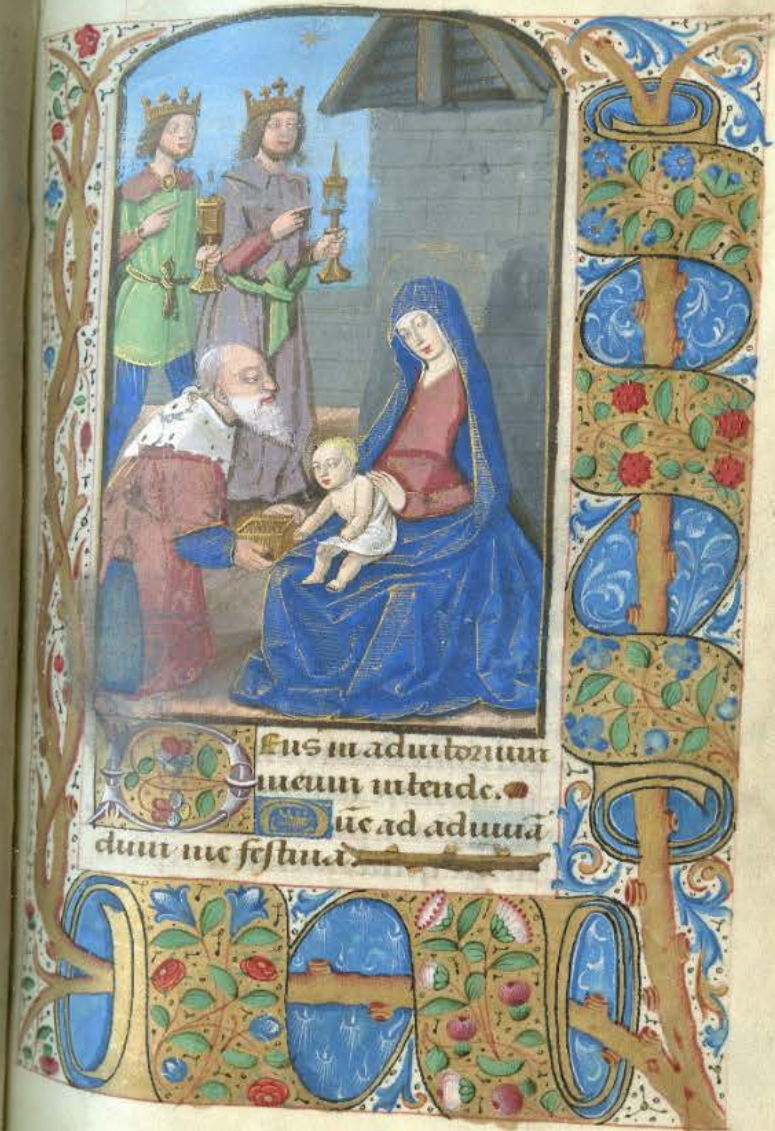 Eus in adiutorium
meum intende.
Dñe ad adiuuā
dum me festina.